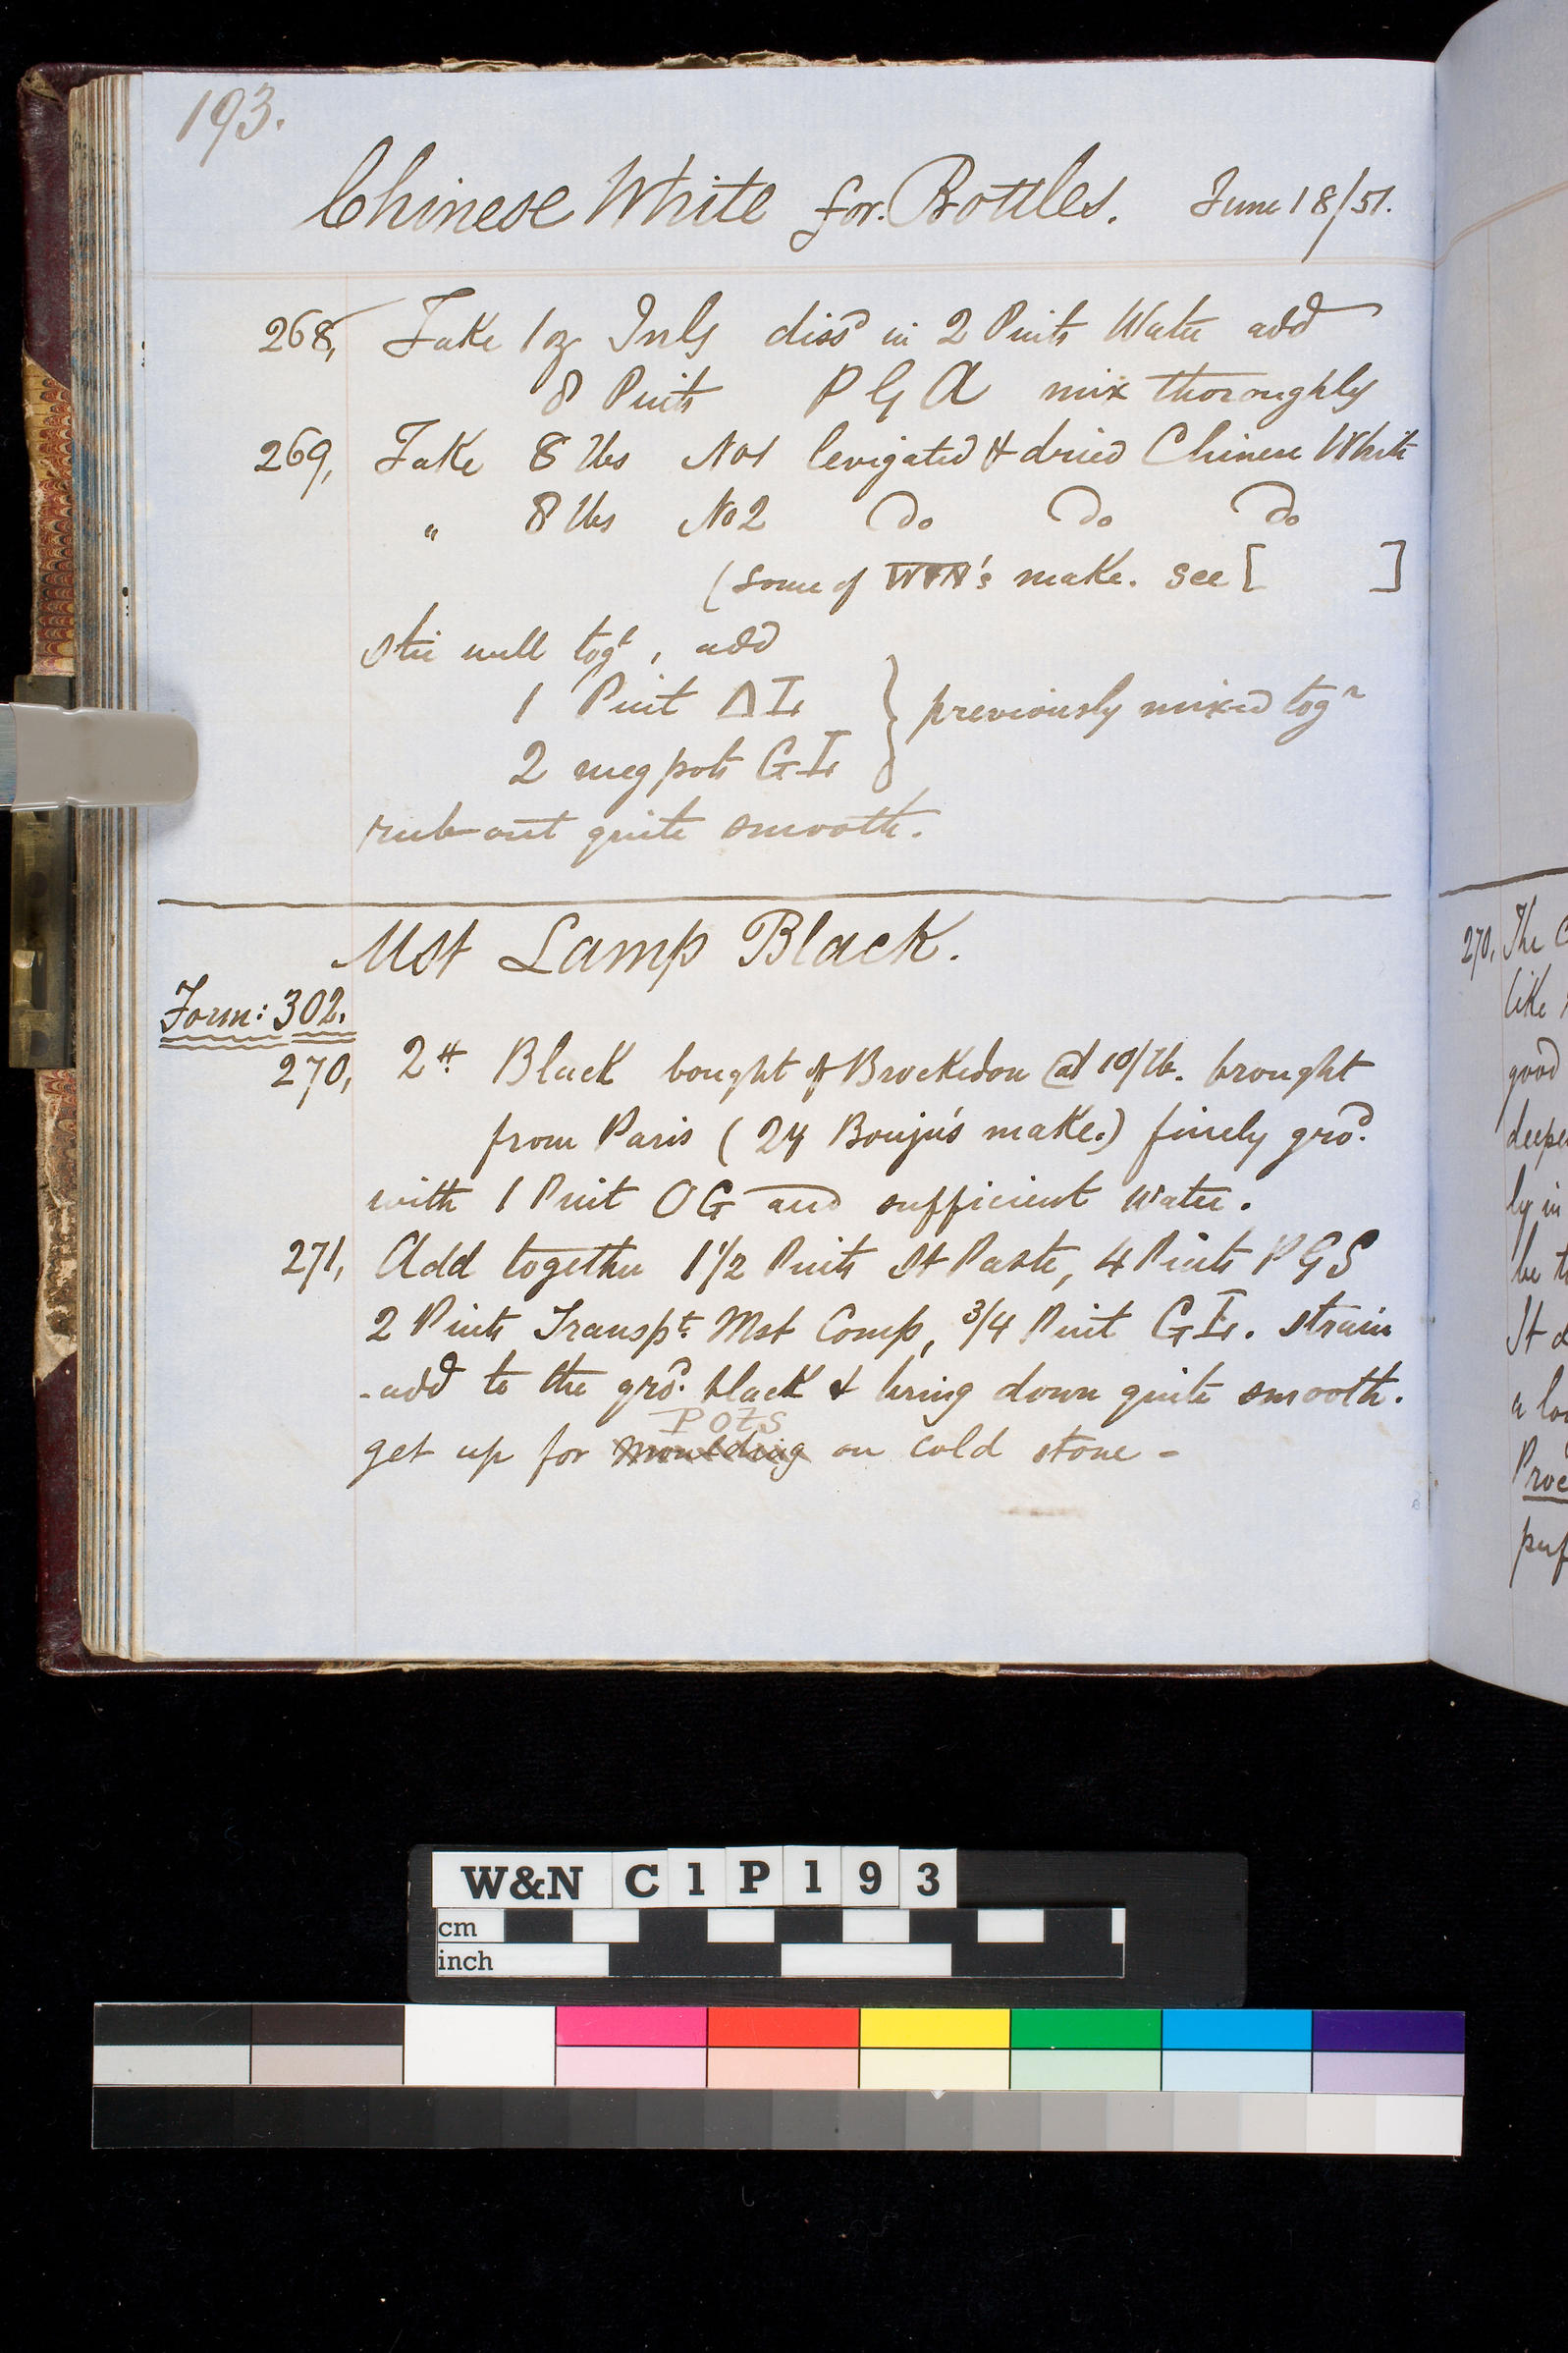 193.
Chinese White for Bottles. June 18/51.
268, Take 1 oz diss^d in 2 Pints Water add
8 Pints P G A mix thoroughly
269, Take 8 lbs No1 levigated & dried Chinese White
" 8 lbs No2 Do Do Do
(some of W&N's make. see [ ]
stir well tog^r, add
1 Pint
2 meg pots } previously mixed tog^r
rub out quite smooth.
Mst Lamp Black.
Form: 302.
270, 2 lb Black bought of Brockedon @ 10/lb. brought
from Paris (24 Bouju's make.) finely gro^d.
with 1 Pint OG and sufficient Water.
271, Add together 1 1/2 Pints St Paste, 4 Pints P G S
2 Pints Transp^t. Mst Comp, 3/4 Pint strain
-add to the gro^d. black & bring down quite smooth.
Pots
get up for moulding on cold stone -
270, The
like
good
deepe
ly in
be t
It
a lo
Proc
puf
W&N C1P193
cm
inch